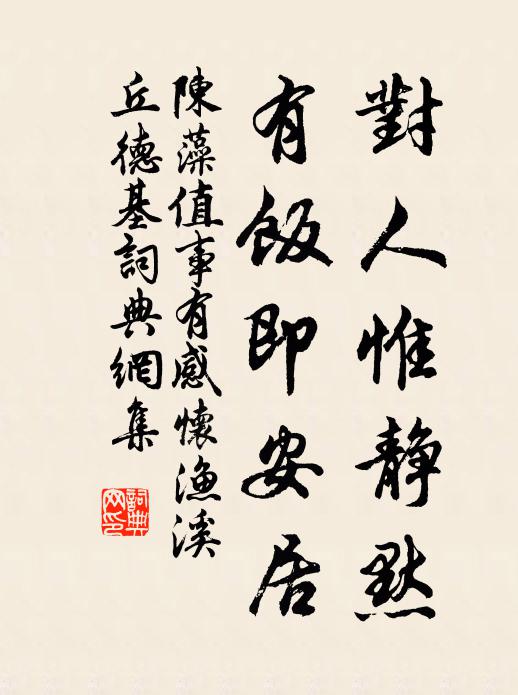 對人惟静默
有飯即安居
陳藻值事有感懷漁溪
丘德基詞典網集
詞典
网印